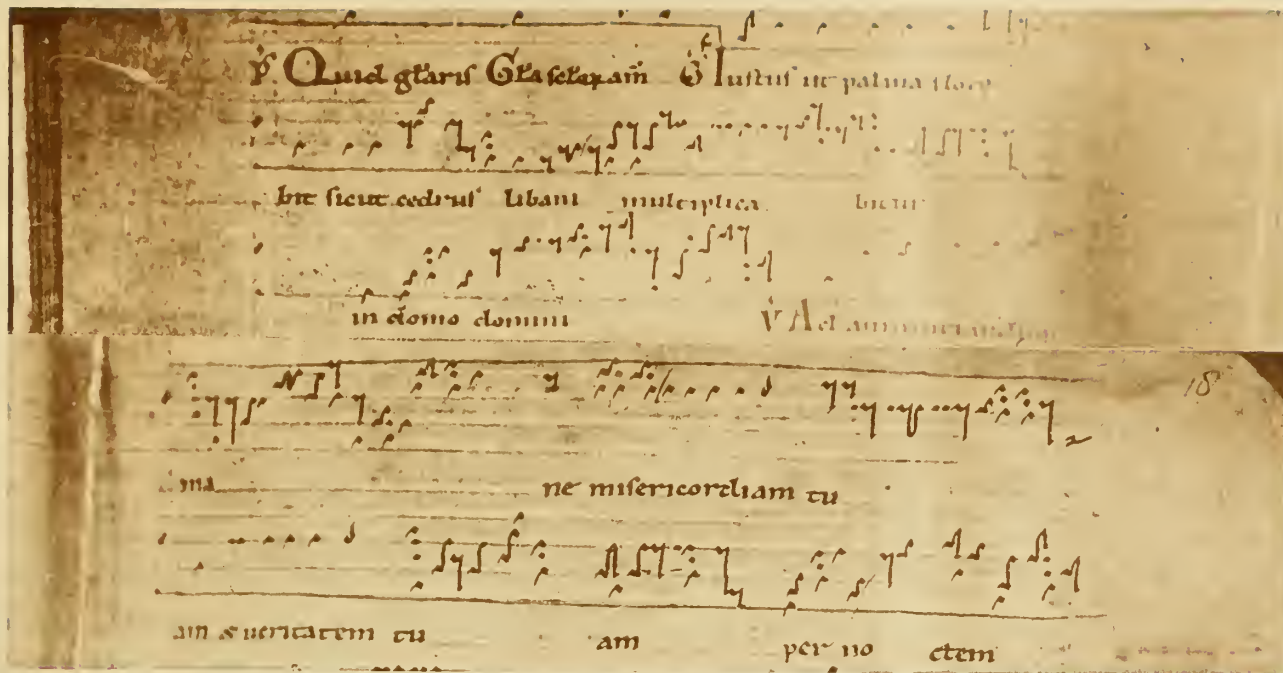 Quid głaris Gła sclaȝam̄ Iustus ut palma flore
bit sicut cedrus libani multiplica bitur
in domo domini Ad annunciandum
18
ma ne misericordiam tu
am & ueritatem tu am per no ctem